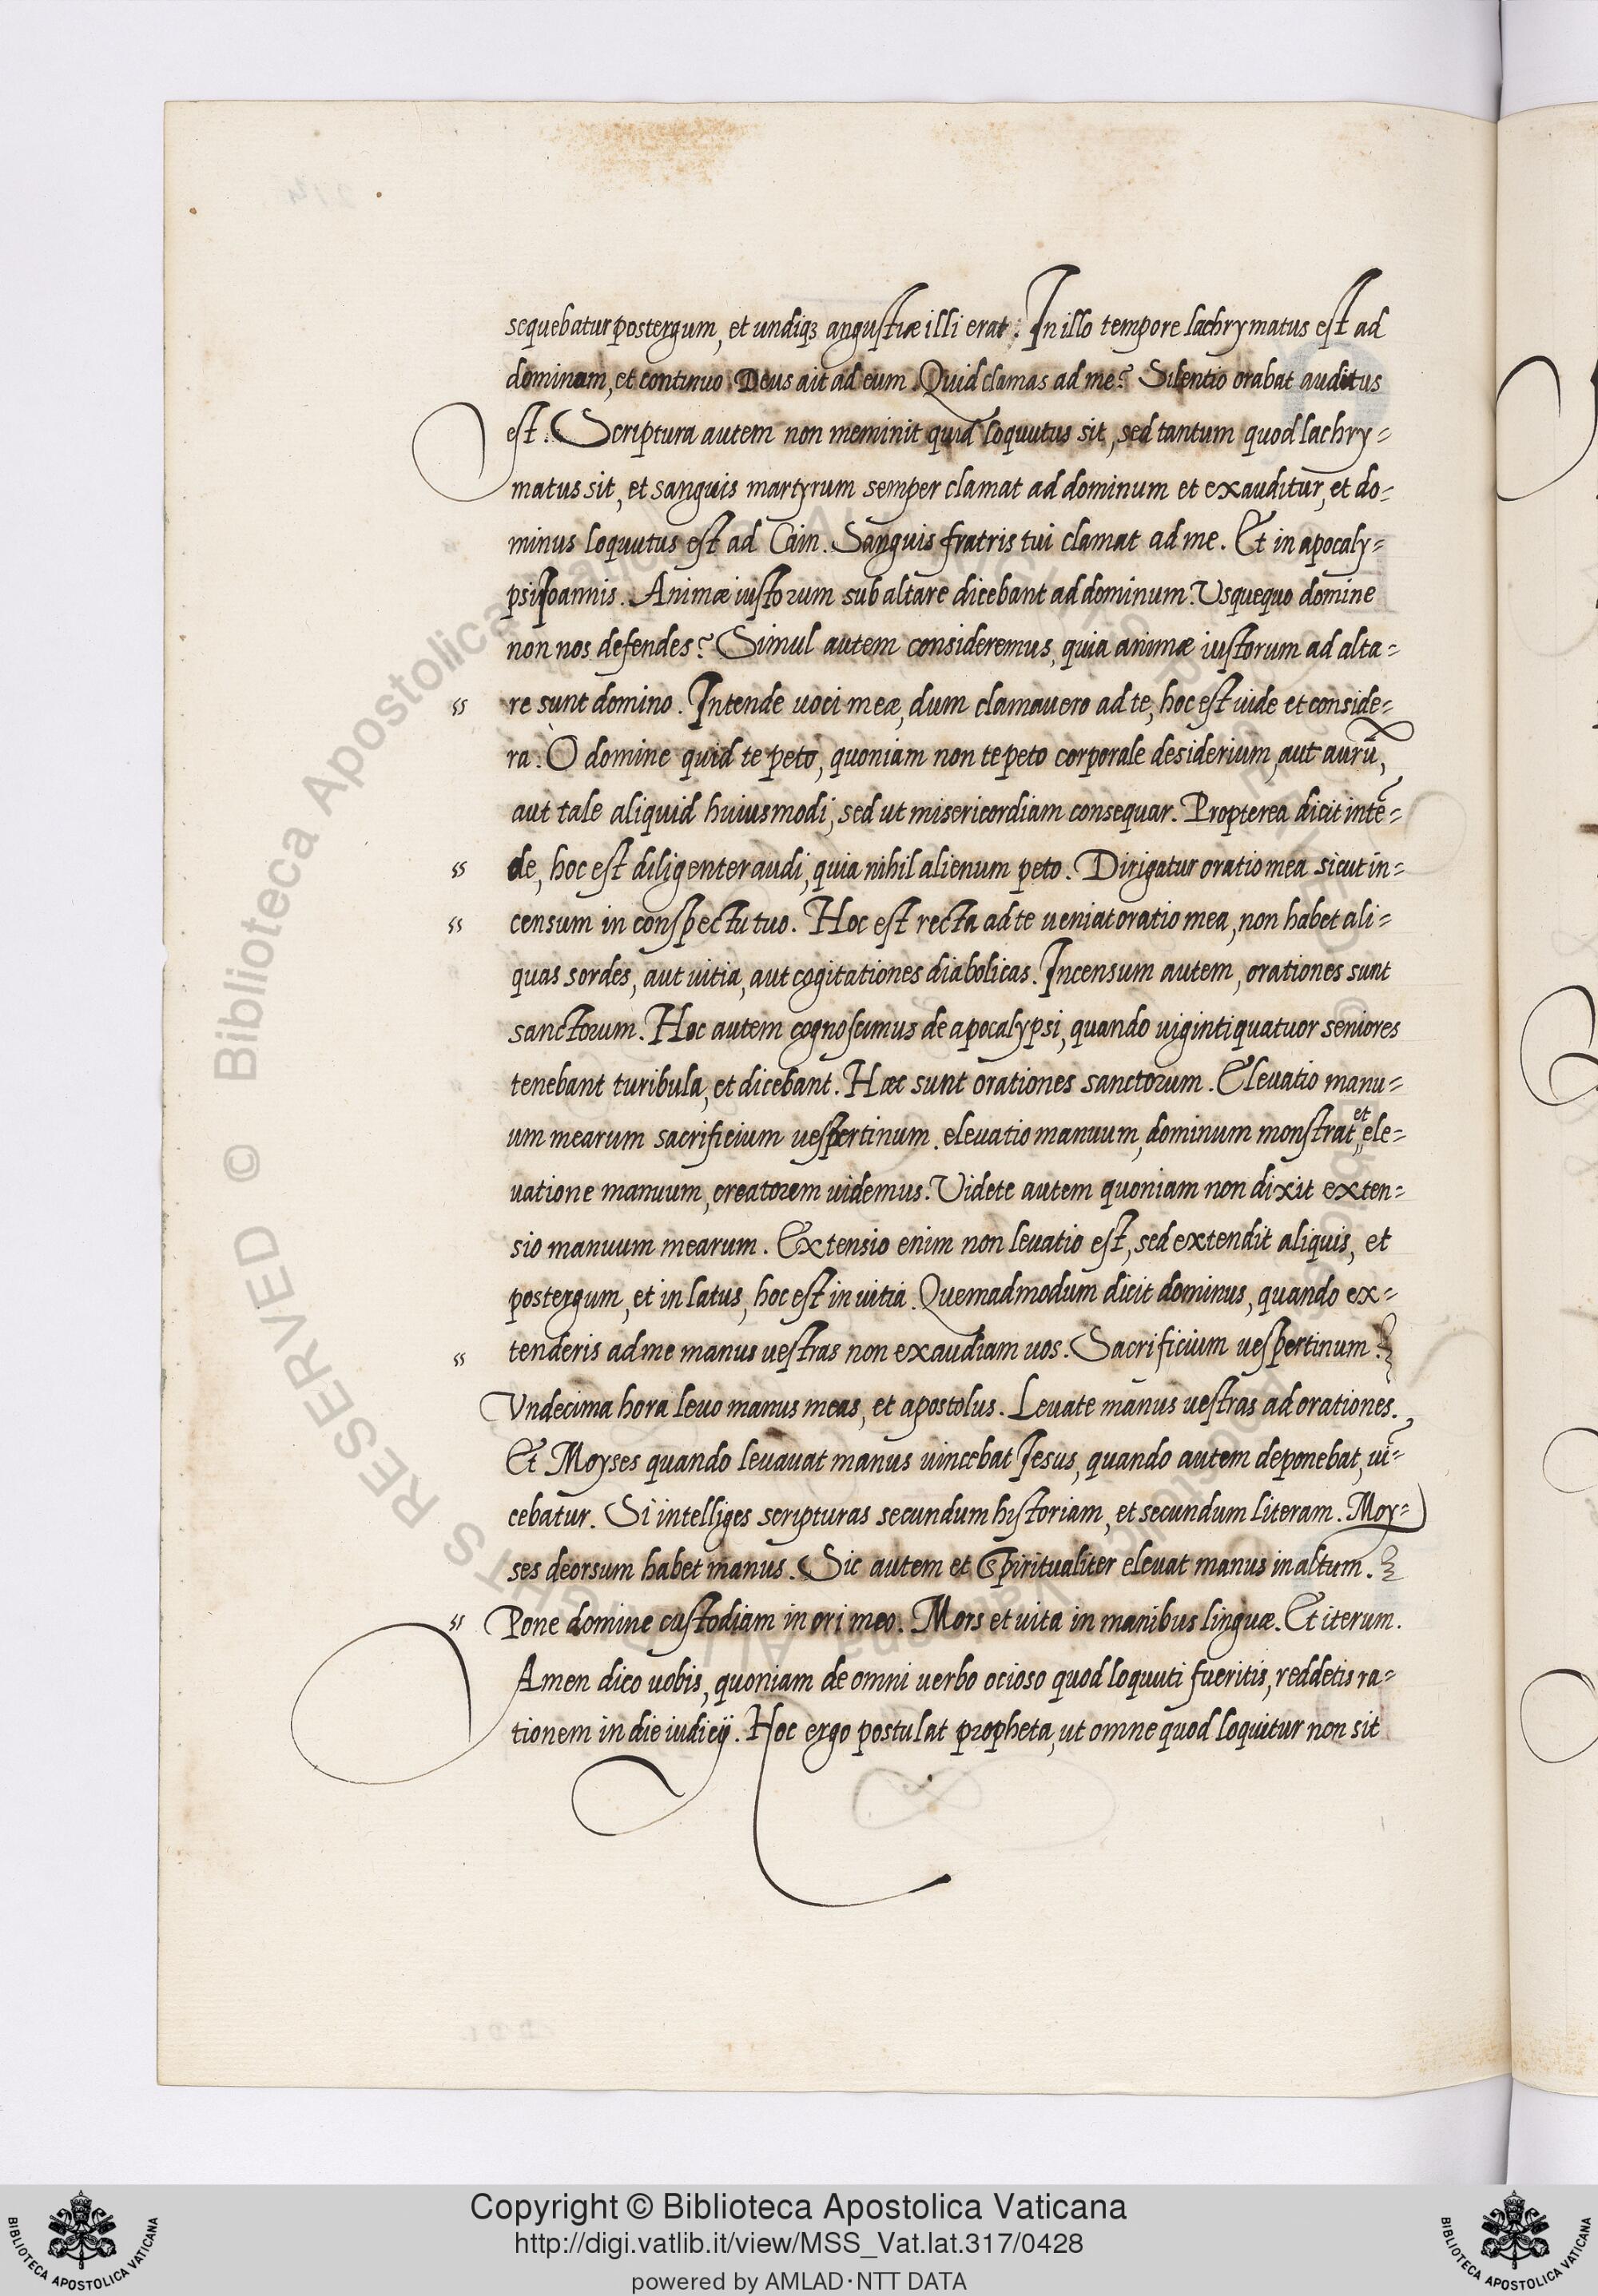 sequebatur postergum, et undiqꝫ angustiæ illi erat. In illo tempore lachrymatus est ad
dominum, et continuo Deus ait ad eum. Quid clamas ad me? Silentio orabat auditus
est. Scriptura autem non meminit quid loquutus sit, sed tantum quod lachry=
matus sit, et sanguis martyrum semper clamat ad dominum et exauditur, et do=
minus loquutus est ad Cain. Sanguis fratris tui clamat ad me. Et in apocaly=
psi Ioannis. Animæ iustorum sub altare dicebant ad dominum. Usquequo domine
non nos defendes? Simul autem consideremus, quia animæ iustorum ad alta=
" re sunt domino. Intende uoci meæ, dum clamauero ad te, hoc est uide et conside=
ra. O domine quid te peto, quoniam non te peto corporale desiderium, aut aurū,
aut tale aliquid huiusmodi, sed ut misericordiam consequar. Propterea dicit intē=
" de, hoc est diligenter audi, quia nihil alienum peto. Dirigatur oratio mea sicut in=
" censum in conspectu tuo. Hoc est recta ad te ueniat oratio mea, non habet ali=
quas sordes, aut uitia, aut cogitationes diabolicas. Incensum autem, orationes sunt
sanctorum. Hoc autem cognoscimus de apocalypsi, quando uiginti quatuor seniores
tenebant turibula, et dicebant. Hæc sunt orationes sanctorum. Eleuatio manu=
um mearum sacrificium uespertinum. eleuatio manuum, dominum monstrat, et ele=
uatione manuum, creatorem uidemus. Videte autem quoniam non dixit exten=
sio manuum mearum. Extensio enim non leuatio est, sed extendit aliquis, et
postergum, et in latus, hoc est in uitia. Quemadmodum dicit dominus, quando ex=
" tenderis ad me manus uestras non exaudiam uos. Sacrificium uespertinum.
Vndecima hora leuo manus meas, et apostolus. Leuate manus uestras ad orationes.
Et Moyses quando leuauat manus uincebat Iesus, quando autem deponebat, uī=
cebatur. Si intelliges scripturas secundum historiam, et secundum literam. Moy=
ses deorsum habet manus. Sic autem et spiritualiter eleuat manus in altum.
" Pone domine custodiam in ori meo. Mors et uita in manibus linguæ. Et iterum.
Amen dico uobis, quoniam de omni uerbo ocioso quod loquuti fueritis, reddetis ra=
tionem in die iudicij. Hoc ergo postulat propheta, ut omne quod loquitur non sit
Copyright © Biblioteca Apostolica Vaticana
http://digi.vatlib.it/view/MSS_Vat.lat.317/0428
powered by AMLAD·NTT DATA
BIBLIOTECA APOSTOLICA VATICANA
BIBLIOTECA APOSTOLICA VATICANA
© Biblioteca Apostolica Vaticana ALL RIGHTS RESERVED